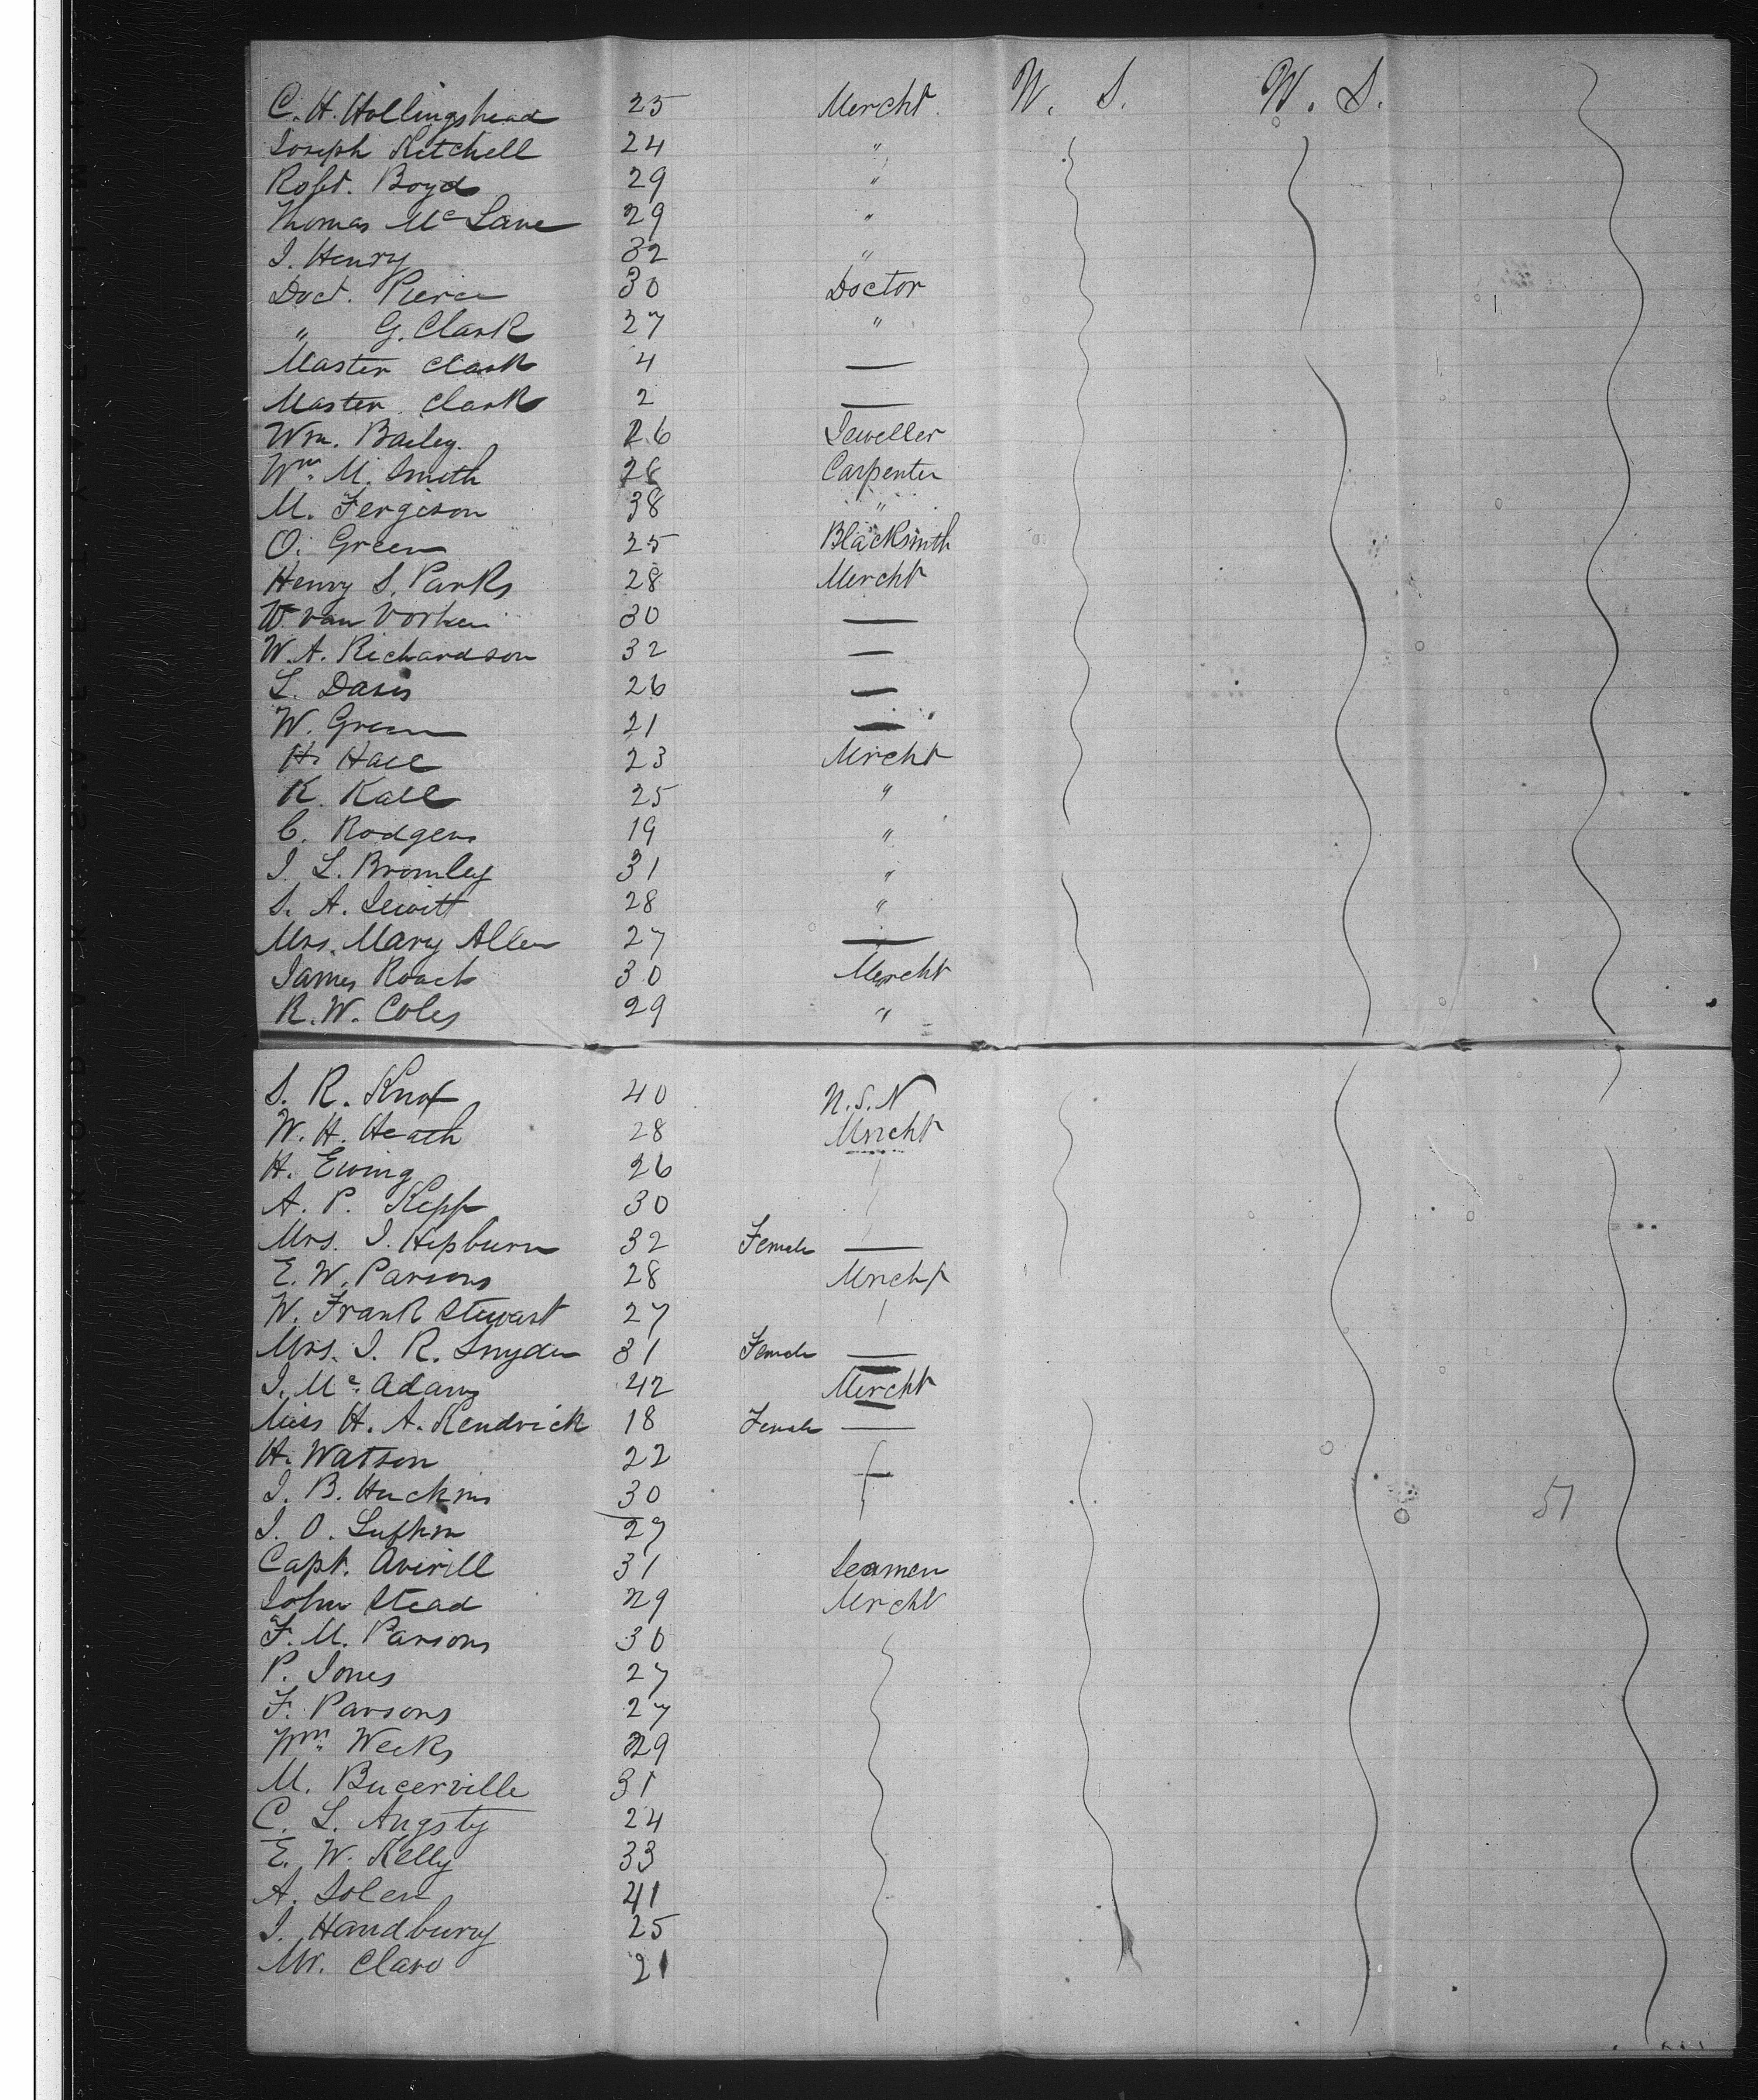 C. H. Hollingshead 25 Mercht. W. S. W. S.
Joseph Kitchell 24 "
Robt. Boyd 29 "
Thomas McLane 29 "
J. Henry 32 "
Doct. Pierce 30 Doctor
" G. Clark 27 "
Master Clark 4 —
Master Clark 2 —
Wm. Bailey. 26 Jeweller
Wm. M. Smith 28 Carpenter
M. Fergison 38 "
O. Green 25 Blacksmith
Henry S. Parks 28 Mercht
W. van Vorhen 30 —
W. A. Richardson 32 —
L. Davis 26 —
W. Green 21 —
H. Hall 23 Mrcht
K. Kall 25 "
C. Rodgers 19 "
J. L. Bromley 31 "
S. A. Jewitt 28 "
Mrs. Mary Allen 27 —
James Roach 30 Mercht
R. W. Coles 29 "
S. R. Knox 40 U.S.N
W. H. Heath 28 Mrcht
H. Ewing 26
A. P. Kepp 30
Mrs. J. Hepburn 32 Female —
E. W. Parsons 28 Mrcht
W. Frank Stewart 27
Mrs. J. R. Snyder 31 Female —
J. Mc. Adams 42 Mercht
Miss H. A. Kendrick 18 Female —
H. Watson 22
J. B. Huckins 30
J. O. Lufkin 27 51
Capt. Averill 31 Seamen
John Stead 29 Mrcht
F. M. Parsons 30
P. Jones 27
F. Parsons 27
Wm. Weeks 29
M. Bucerville 31
C. L. Angsty 24
E. W. Kelly 33
A. Solen 41
J. Handbury 25
Mr. Claro 21